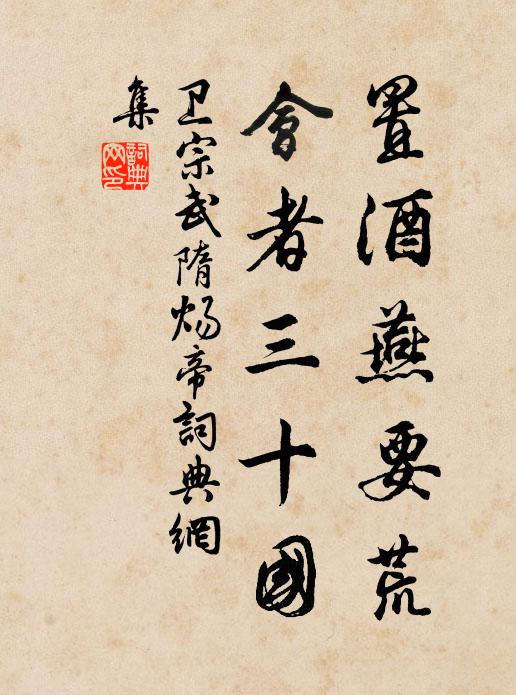 置酒燕要荒
會者三十國
卫宗武隋炀帝詞典網
集
詞典網印